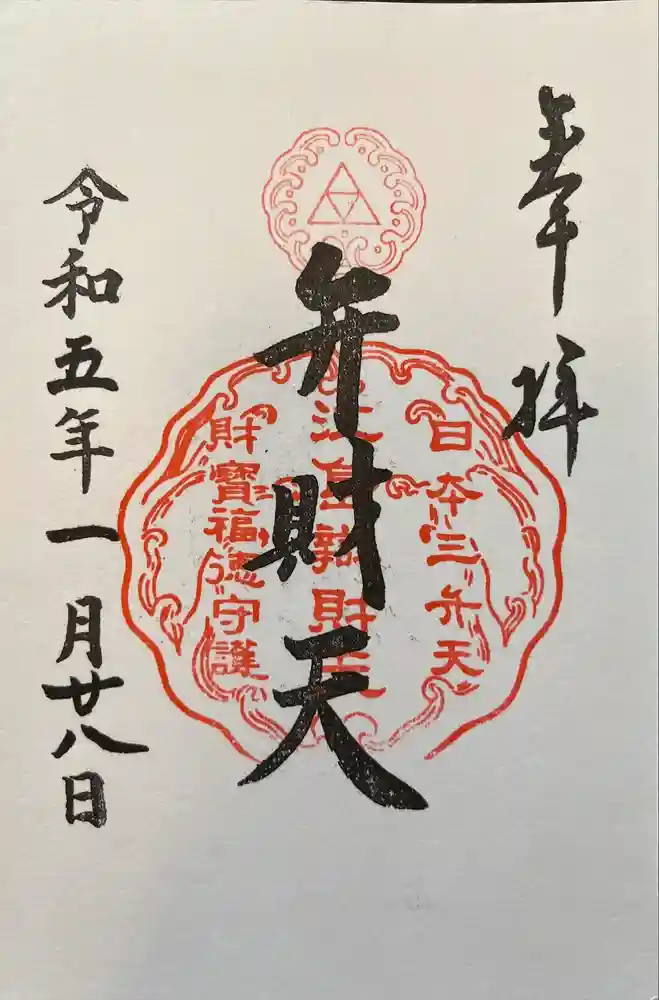 奉拝
日本三弁天
江島辨財天
弁財天
財寶福徳守護
令和五年一月廿八日